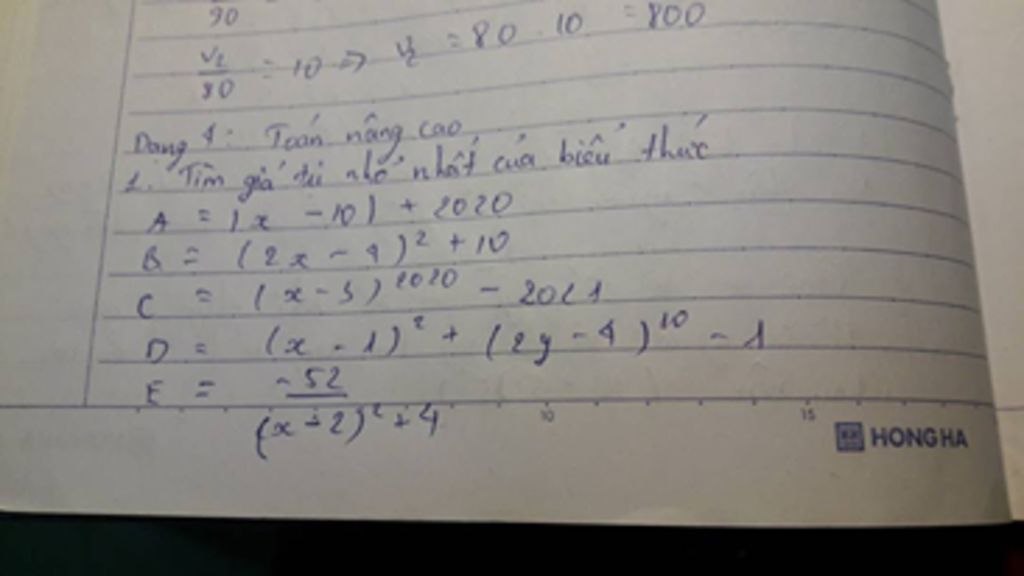 90
V₂/80 = 10 => V₂ = 80 . 10 = 800
Dạng 4: Toán nâng cao
1. Tìm giá trị nhỏ nhất của biểu thức
A = |x - 10| + 2020
B = (2x - 4)² + 10
C = (x - 5)²⁰²⁰ - 2021
D = (x - 1)² + (2y - 4)¹⁰ - 1
E = -52/(x + 2)² + 4
10 15
HONG HA